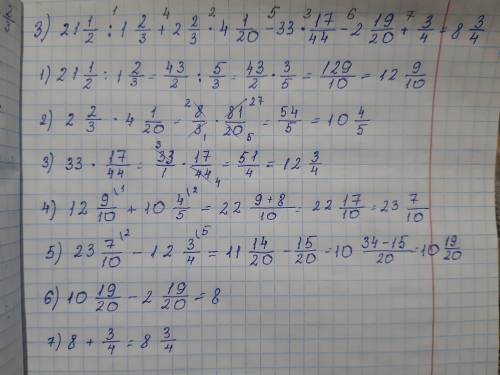 3) 21 1/2 : 1 2/3 + 2 2/3 · 4 1/20 - 33 · 17/44 - 2 19/20 + 3/4 = 8 3/4
1) 21 1/2 : 1 2/3 = 43/2 : 5/3 = 43/2 · 3/5 = 129/10 = 12 9/10
2) 2 2/3 · 4 1/20 = 8/3 · 81/20 = 54/5 = 10 4/5
3) 33 · 17/44 = 33/1 · 17/44 = 51/4 = 12 3/4
4) 12 9/10 + 10 4/5 = 22 9+8/10 = 22 17/10 = 23 7/10
5) 23 7/10 - 12 3/4 = 11 14/20 - 15/20 = 10 34-15/20 = 10 19/20
6) 10 19/20 - 2 19/20 = 8
7) 8 + 3/4 = 8 3/4